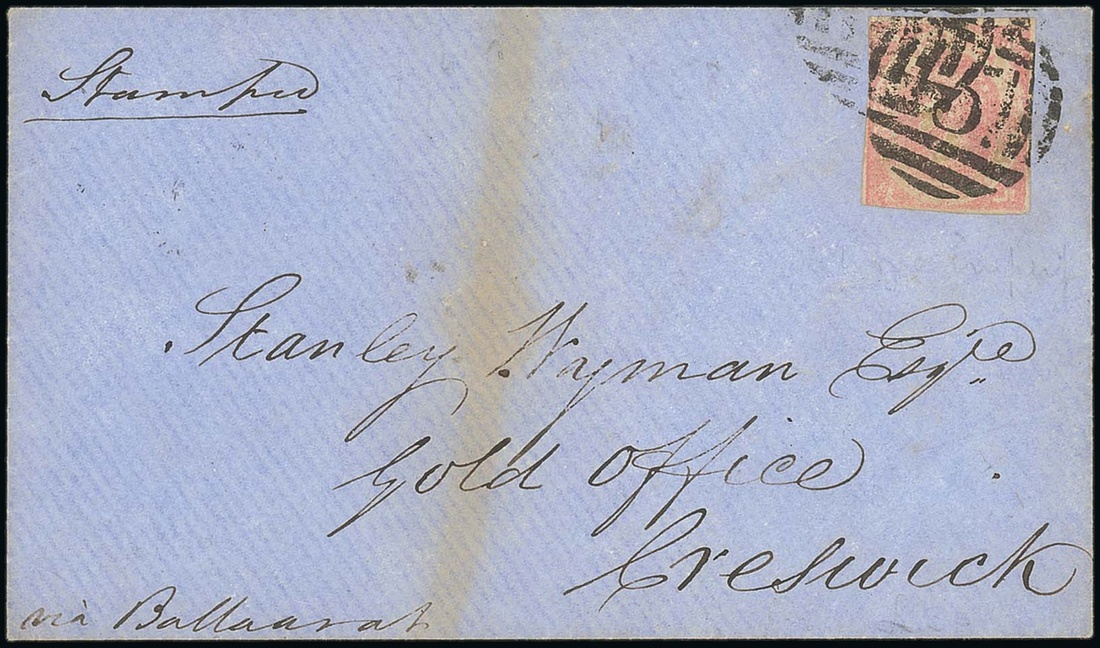 Stamped
Stanley Wyman Esqre
Gold Office
Creswick
via Ballaarat